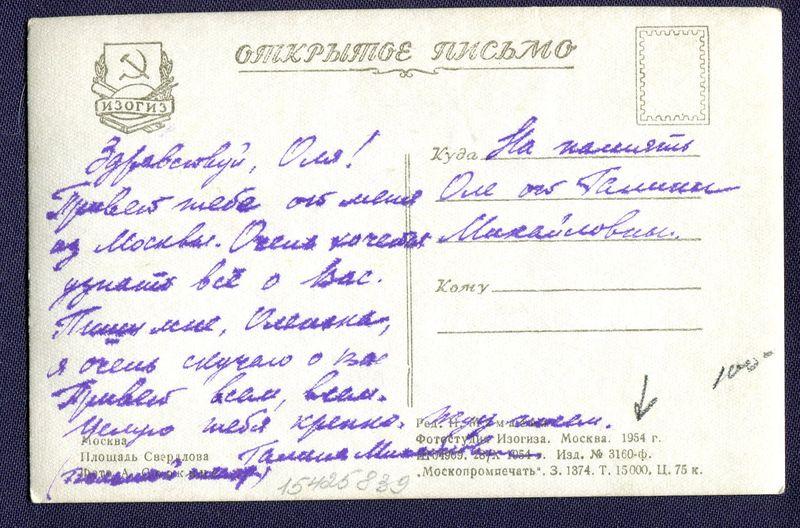 ОТКРЫТОЕ ПИСЬМО
ИЗОГИЗ
Здравствуй, Оля!
Привет тебе от меня
из Москвы. Очень хочется
узнать всё о Вас.
Пиши мне, Оленька,
я очень скучаю о вас
Привет всем, всем.
Целую тебя крепко. Жду писем.
Галина
Куда На память
Оле от Галины
Михайловны.
Кому
Москва
Площадь Свердлова
Фото А.
Ред.
Фотостудия Изогиза. Москва. 1954 г.
1954 г. Изд. № 3160-ф.
„Москопромпечать". З. 1374. Т. 15000, Ц. 75 к.
100-
15425839